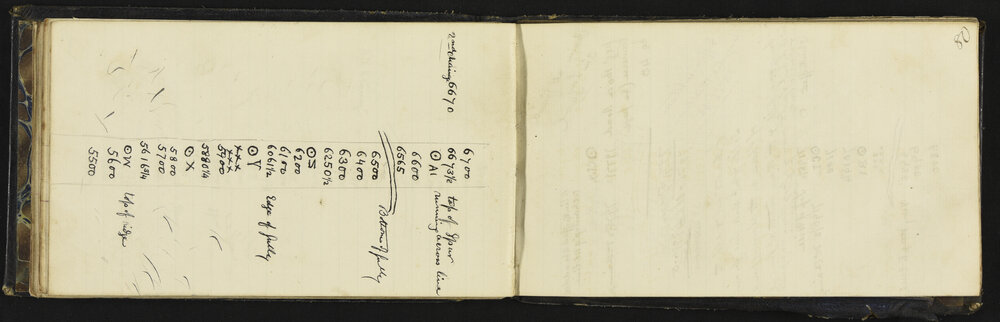 2nd chaining 6670
6700
6673½ top of Spur
⊙ A1 running across line
6600
6565
6500 Bottom of gully
6400
6300
6250½
⊙ Z
6200
6100
6061½ Edge of gully
⊙ Y
5900
5880¼
⊙ X
5800
5700
5616¾
⊙ W top of ridge
5600
5500
28